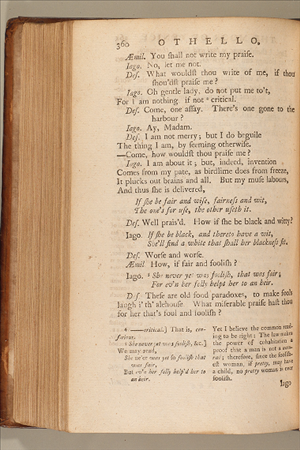 360 OTHELLO.
Æmil. You shall not write my praise.
Iago. No, let me not.
Des. What wouldst thou write of me, if thou
shou'dst praise me?
Iago. Oh gentle lady, do not put me to't,
For I am nothing if not ⁶ critical.
Des. Come, one assay. There's one gone to the
harbour?
Iago. Ay, Madam.
Des. I am not merry; but I do beguile
The thing I am, by seeming otherwise.
—Come, how wouldst thou praise me?
Iago. I am about it; but, indeed, invention
Comes from my pate, as birdlime does from freeze,
It plucks out brains and all. But my muse labours,
And thus she is delivered,
If she be fair and wise, fairness and wit,
The one's for use, the other useth it.
Des. Well prais'd. How if she be black and witty?
Iago. If she be black, and thereto have a wit,
She'll find a white that shall her blackness fit.
Des. Worse and worse.
Æmil. How, if fair and foolish?
Iago. ⁷ She never yet was foolish, that was fair;
For ev'n her folly helpt her to an heir.
Des. These are old fond paradoxes, to make fools
laugh i' th' alehouse. What miserable praise hast thou
for her that's foul and foolish?
⁶ —critical.] That is, cen-
sorious.
⁷ She never yet was foolish, &c.]
We may read,
She ne'er was yet so foolish that
was fair,
But ev'n her folly help'd her to
an heir.
Yet I believe the common read-
ing to be right: The law makes
the power of cohabitation a
proof that a man is not a
therefore, since the foolish-
est woman, if pretty, may have
a child, no pretty woman is ever
foolish.
Iago